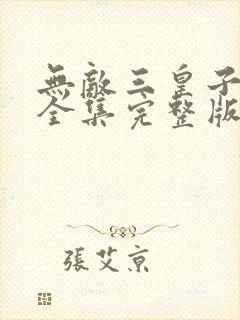 無敵三皇子
全集完整版
張艾京